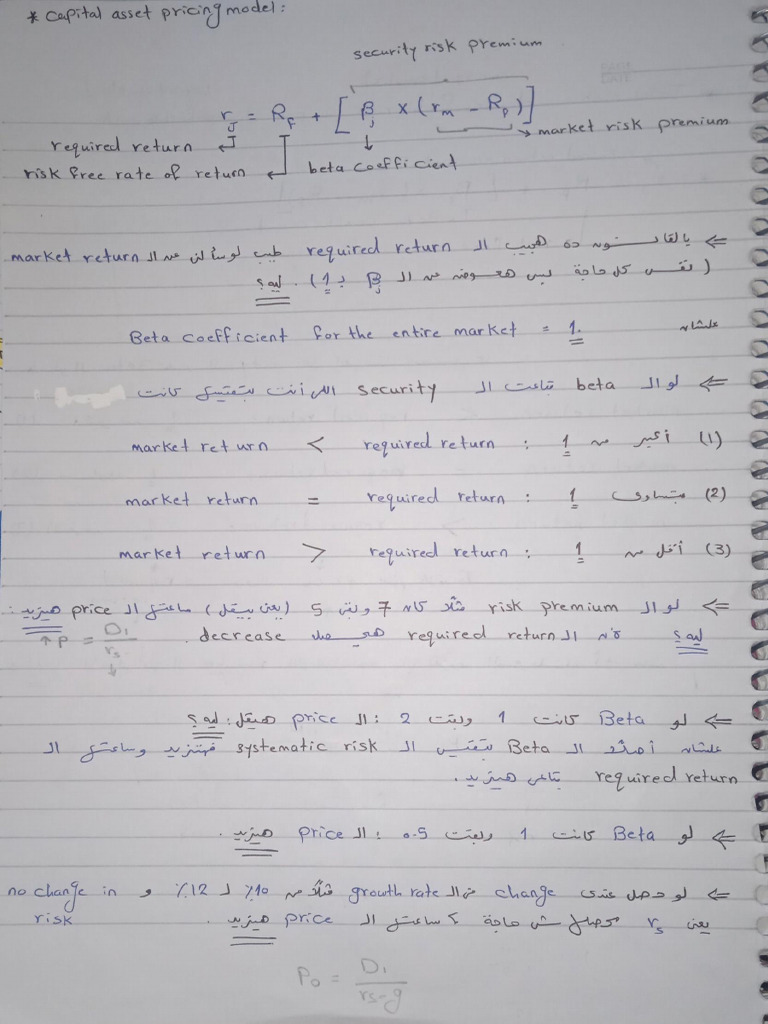 * capital asset pricing model :
security risk premium
rj = RF + [ βj x ( rm - RF ) ]
market risk premium
required return
risk free rate of return
beta coefficient
⇐ بالقانون ده هجيب ال required return طيب لو سألني عن ال market return
( نفس كل حاجة بس هعوض عن ال βj بـ 1 ) . ليه ؟
علشان Beta coefficient for the entire market = 1.
⇐ لو ال beta بتاعت ال security اللي أنت بتقيس كانت
(1) أكبر من 1 : required return > market return
(2) بتساوي 1 : required return = market return
(3) أقل من 1 : required return < market return
⇐ لو ال risk premium مثلاً كان 7 وبقى 5 ( يعني بيقل ) ساعتها ال price هيزيد :
ليه ؟ لأن ال required return هيحصله decrease .
↑P = D1 / rs ↓
⇐ لو Beta كانت 1 وبقت 2 : ال price هيقل : ليه ؟
علشان أصلاً ال Beta بتقيس ال systematic risk فهتزيد وساعتها ال
required return بتاعي هيزيد .
⇐ لو Beta كانت 1 وبقت 0.5 : ال price هيزيد .
⇐ لو حصل عندي change في ال growth rate مثلاً من 10% لـ 12% و no change in
risk يعني rs محصلهاش حاجة ؟ ساعتها ال price هيزيد .
P0 = D1 / rs-g